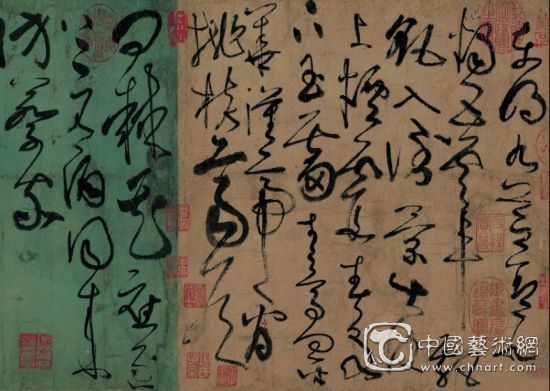 東明九芝蓋北
燭五雲車飄
飖入倒景出没
上煙霞春泉
下玉霤青鳥向金
華漢帝看
桃核齊侯
問棘花應逐
上元酒同来
訪蔡家
中國藝術網
www.chnart.com